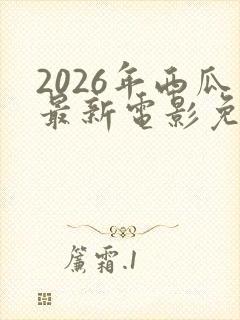 2026年西瓜
最新電影免
簾霜.1